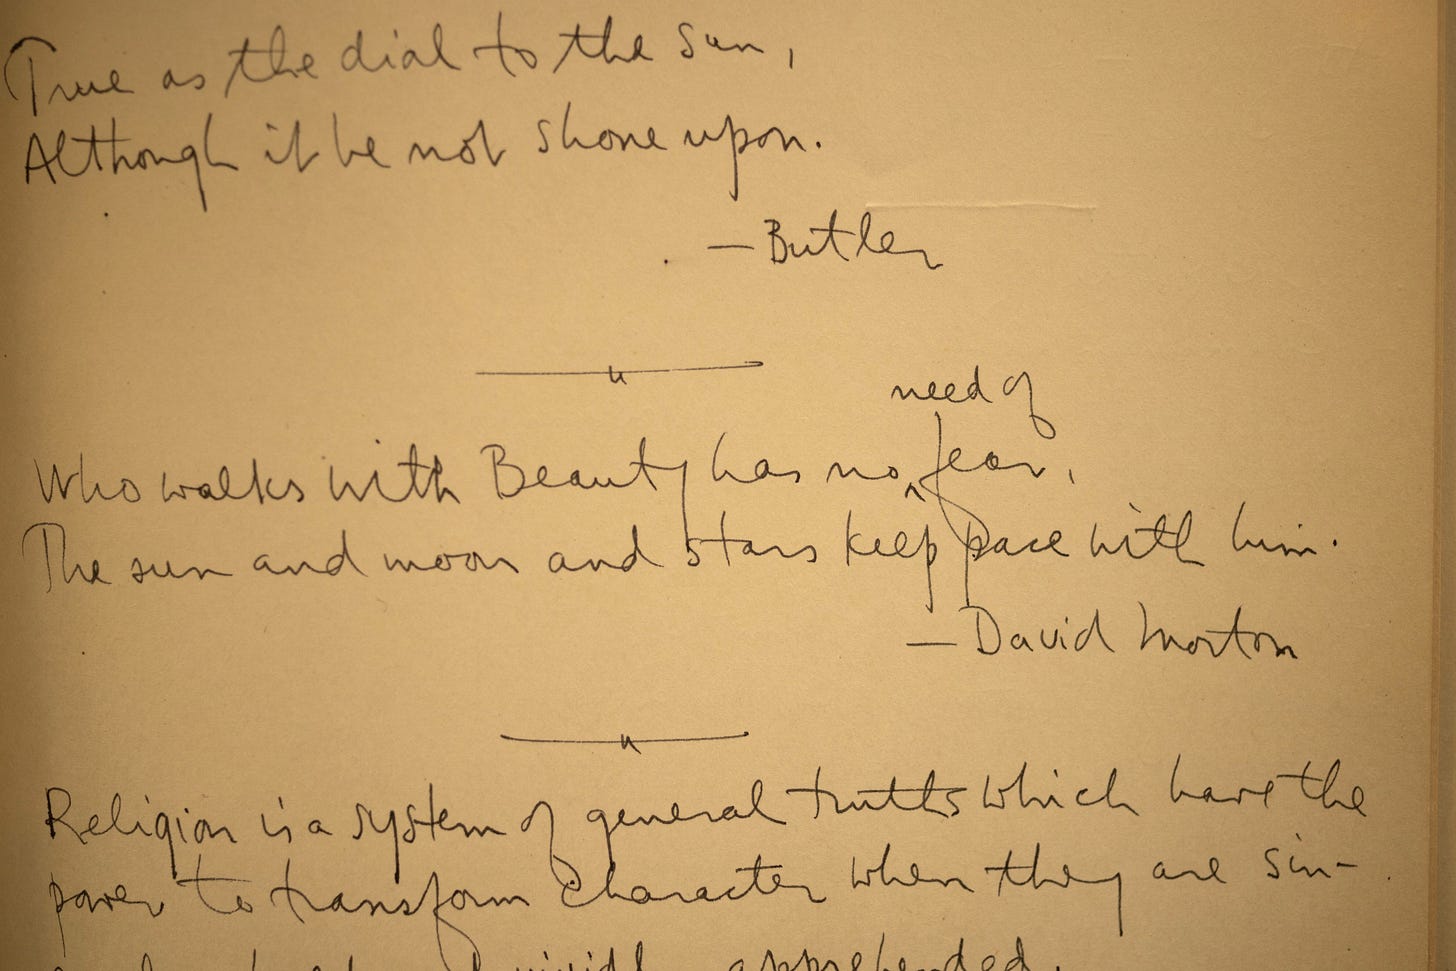 True as the dial to the sun,
Although it be not shone upon.
— Butler
need of
Who walks with Beauty has no fear,
The sun and moon and stars keep pace with him.
— David Morton
Religion is a system of general truths which have the
power to transform character when they are sin-
vividly apprehended.